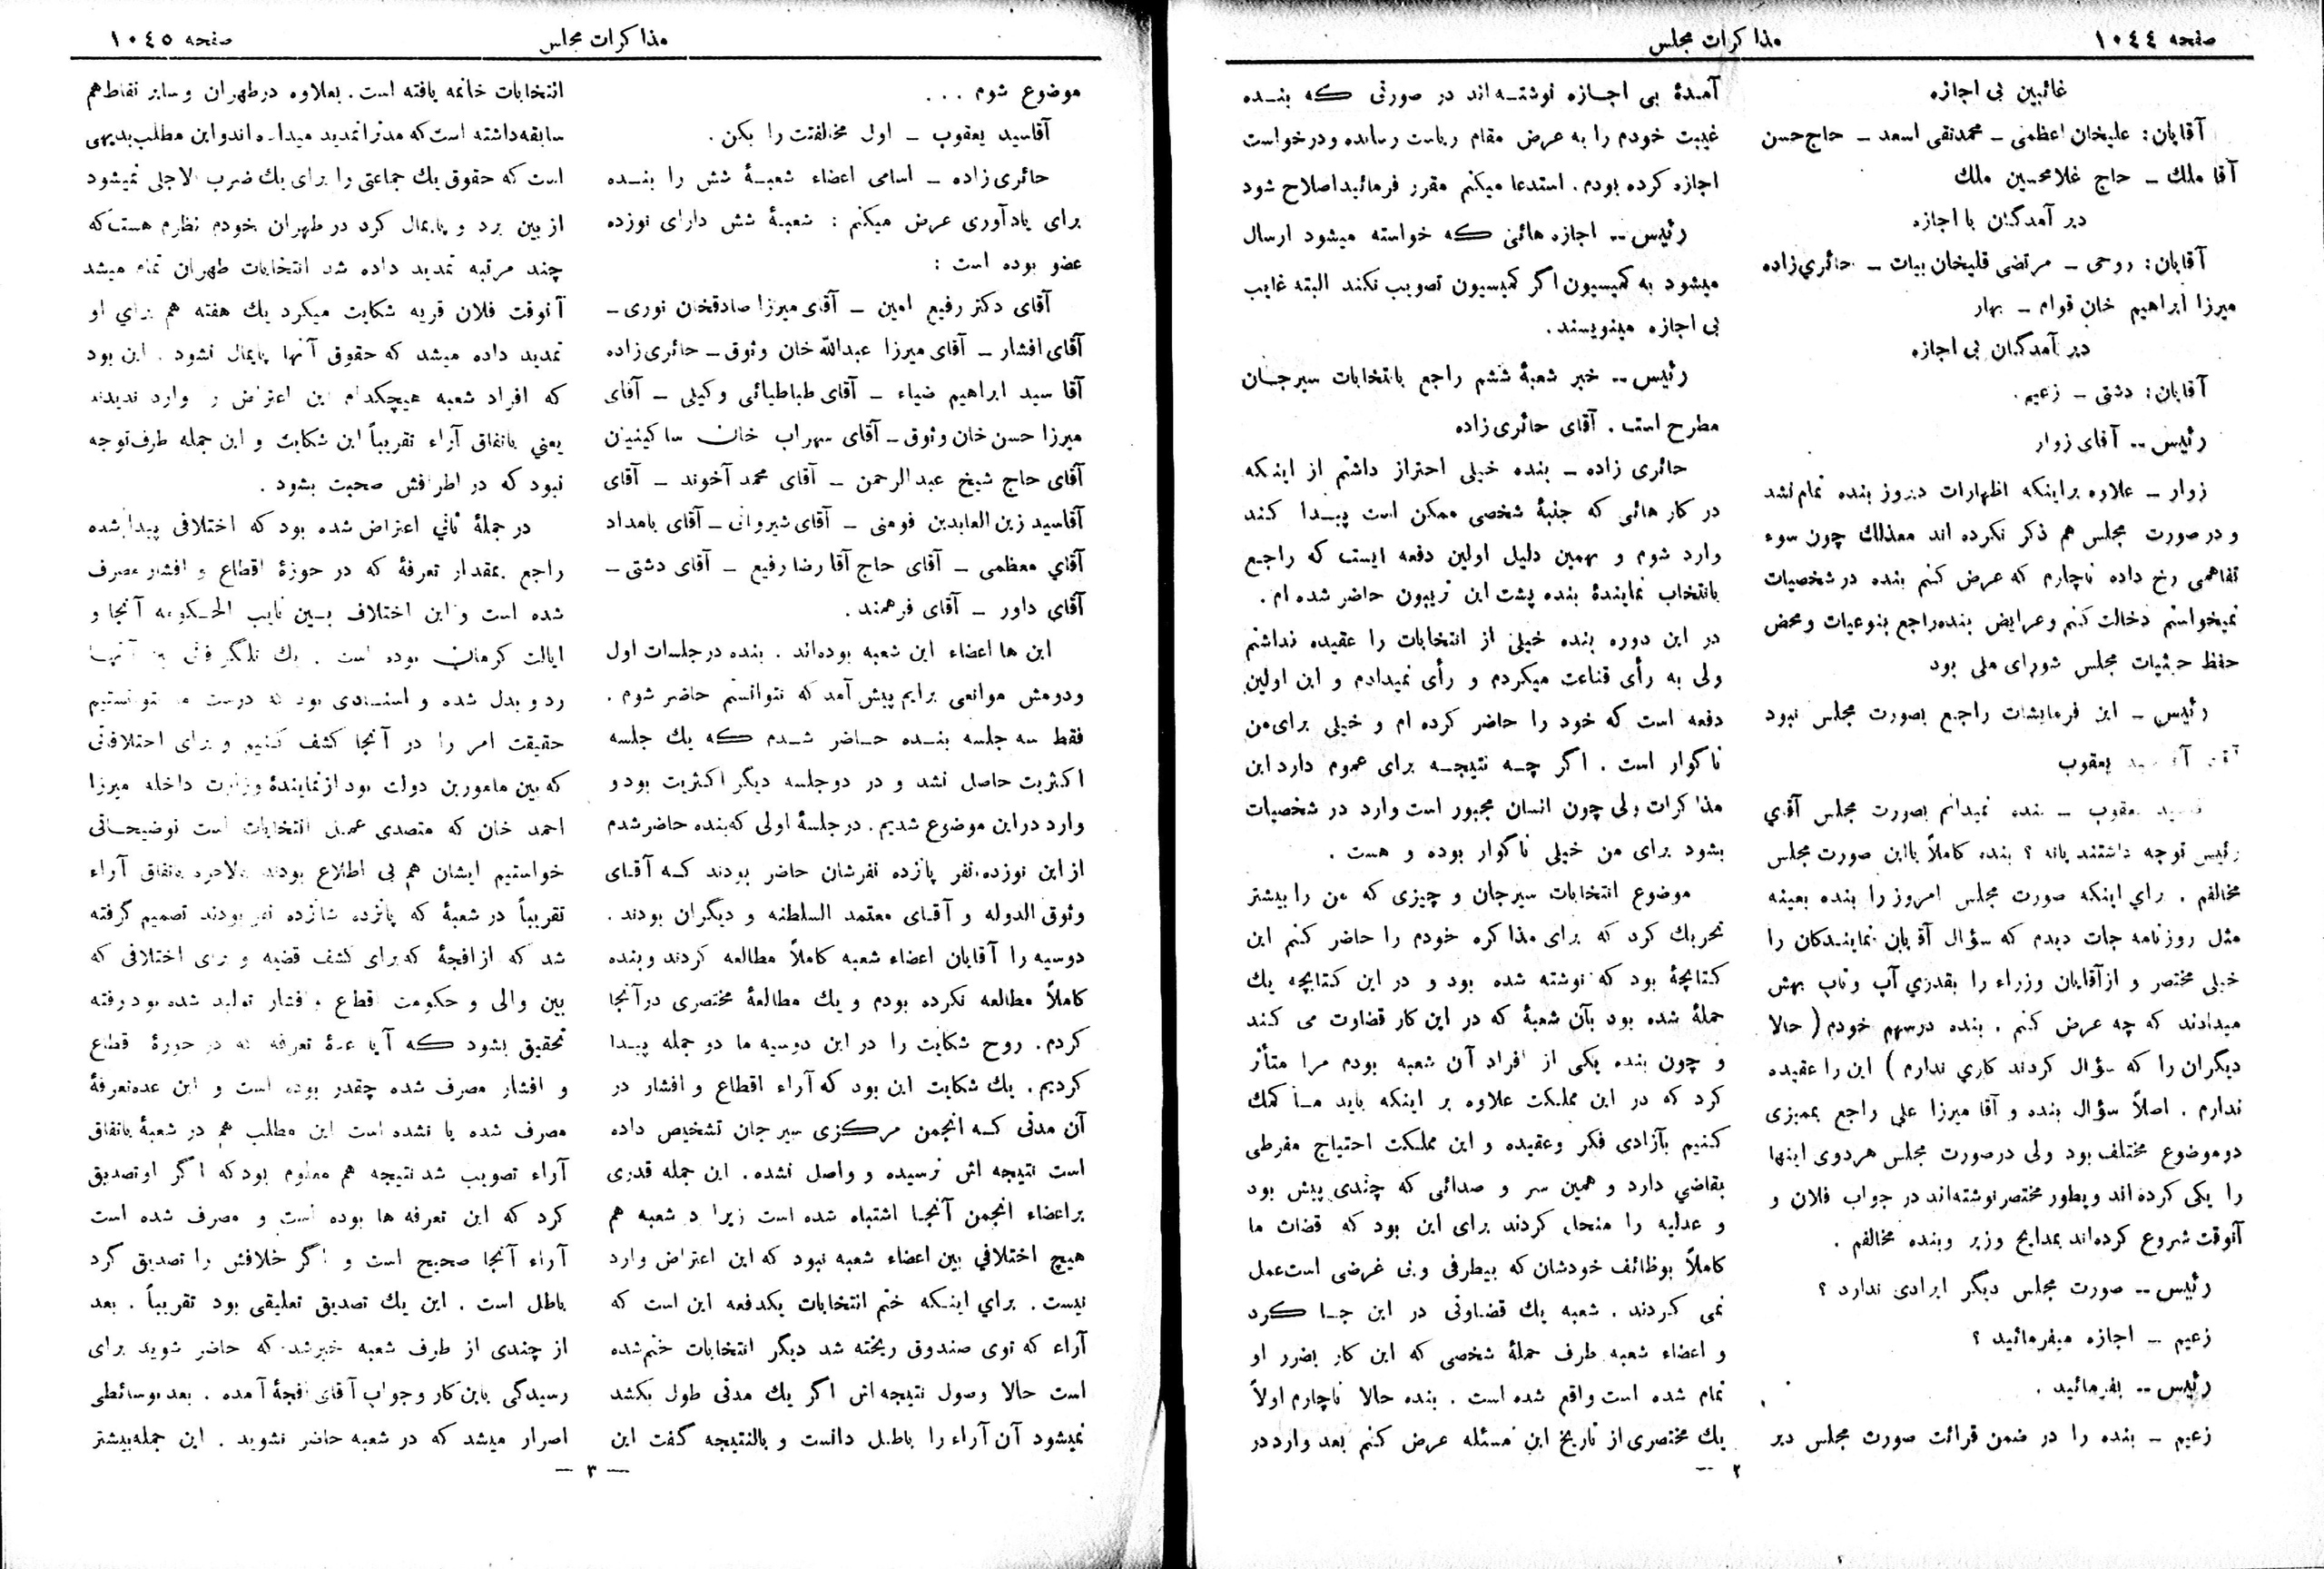 صفحه ١٠٤٤
مذاکرات مجلس
غائبین بی اجازه
آقایان: علیخان اعظمی ـ محمدتقی اسعد ـ حاج حسن
آقا ملك ـ حاج غلامحسین ملك
دیر آمدگان با اجازه
آقایان: روحی ـ مرتضی قلیخان بیات ـ حائري زاده
میرزا ابراهیم خان قوام ـ بهار
دیر آمدگان بی اجازه
آقایان: دشتی ـ زعیم.
رئیس ـ آقای زوار
زوار ـ علاوه براینکه اظهارات دیروز بنده تمام نشد
و در صورت مجلس هم ذکر نکرده اند معذلك چون سوء
تفاهمی رخ داده ناچارم که عرض کنم بنده در شخصیات
نمیخواستم دخالت کنم و عرایض بنده راجع بنوعیات و محض
حفظ حیثیات مجلس شورای ملی بود
رئیس ـ این فرمایشات راجع بصورت مجلس نبود
یعقوب
یعقوب ـ بنده نمیدانم بصورت مجلس آقاي
رئیس توجه داشتند یانه ؟ بنده کاملاً بااین صورت مجلس
مخالفم . براي اینکه صورت مجلس امروز را بنده بعینه
مثل روزنامه جات دیدم که سؤال آقایان نمایندکان را
خیلی مختصر و از آقایان وزراء را بقدري آب و تاب بهش
میدادند که چه عرض کنم . بنده درسهم خودم ( حالا
دیگران را که سؤال کردند کاري ندارم ) این را عقیده
ندارم . اصلاً سؤال بنده و آقا میرزا علی راجع بممیزی
دو موضوع مختلف بود ولی درصورت مجلس هردوی اینها
را یکی کرده اند و بطور مختصر نوشته اند در جواب فلان و
آنوقت شروع کرده اند بمدایح وزیر و بنده مخالفم .
رئیس ـ صورت مجلس دیگر ایرادی ندارد ؟
زعیم ـ اجازه میفرمائید ؟
رئیس ـ بفرمائید .
زعیم ـ بنده را در ضمن قرائت صورت مجلس دیر
آمدهٔ بی اجازه نوشته اند در صورتی که بنده
غیبت خودم را به عرض مقام ریاست رسانده و درخواست
اجازه کرده بودم. استدعا میکنم مقرر فرمائید اصلاح شود
رئیس ـ اجازه هائی که خواسته میشود ارسال
میشود به کمیسیون اگر کمیسیون تصویب نکند البته غایب
بی اجازه مینویسند.
رئیس ـ خبر شعبهٔ ششم راجع بانتخابات سیرجان
مطرح است . آقای حائری زاده
حائری زاده ـ بنده خیلی احتراز داشتم از اینکه
در کار هائی که جنبهٔ شخصی ممکن است پیدا کند
وارد شوم و بهمین دلیل اولین دفعه ایست که راجع
بانتخاب نمایندهٔ بنده پشت این تریبون حاضر شده ام.
در این دوره بنده خیلی از انتخابات را عقیده نداشتم
ولی به رأی قناعت میکردم و رأی نمیدادم و این اولین
دفعه است که خود را حاضر کرده ام و خیلی برای من
ناگوار است . اگر چه نتیجه برای عموم دارد این
مذاکرات ولی چون انسان مجبور است وارد در شخصیات
بشود برای من خیلی ناگوار بوده و هست .
موضوع انتخابات سیرجان و چیزی که من را بیشتر
تحریك کرد که برای مذاکره خودم را حاضر کنم این
کتابچهٔ بود که نوشته شده بود و در این کتابچه یك
حملهٔ شده بود بآن شعبهٔ که در این کار قضاوت می کند
و چون بنده یکی از افراد آن شعبه بودم مرا متأثر
کرد که در این مملکت علاوه بر اینکه باید ما کمك
کنیم بآزادی فکر وعقیده و این مملکت احتیاج مفرطی
بقاضي دارد و همین سر و صدائی که چندی پیش بود
و عدلیه را منحل کردند برای این بود که قضات ما
کاملاً بوظائف خودشان که بیطرفی و بی غرضی است عمل
نمی کردند . شعبه یك قضاوتی در این جا کرد
و اعضاء شعبه طرف حملهٔ شخصی که این کار بضرر او
تمام شده است واقع شده است . بنده حالا ناچارم اولاً
یك مختصری از تاریخ این مسئله عرض کنم بعد وارد در
٢ ـ
صفحه ١٠٤٥
مذاکرات مجلس
موضوع شوم ...
آقاسید یعقوب ـ اول مخالفتت را بکن .
حائری زاده ـ اسامی اعضاء شعبهٔ شش را بنده
برای یادآوری عرض میکنم : شعبهٔ شش دارای نوزده
عضو بوده است :
آقای دکتر رفیع امین ـ آقای میرزا صادقخان نوری ـ
آقای افشار ـ آقای میرزا عبدالله خان وثوق ـ حائری زاده
آقا سید ابراهیم ضیاء ـ آقای طباطبائی وکیلی ـ آقای
میرزا حسن خان وثوق ـ آقای سهراب خان ساکینیان
آقای حاج شیخ عبدالرحمن ـ آقای محمد آخوند ـ آقای
آقاسید زین العابدین فومنی ـ آقای شیروانی ـ آقای بامداد
آقاي معظمی ـ آقای حاج آقا رضا رفیع ـ آقای دشتی ـ
آقاي داور ـ آقای فرهمند.
این ها اعضاء این شعبه بوده اند . بنده در جلسات اول
و دومش موانعی برایم پیش آمد که نتوانستم حاضر شوم .
فقط سه جلسه بنده حاضر شدم که یك جلسه
اکثریت حاصل نشد و در دوجلسه دیگر اکثریت بود و
وارد در این موضوع شدیم. در جلسهٔ اولی که بنده حاضر شدم
از این نوزده نفر پانزده نفرشان حاضر بودند که آقای
وثوق الدوله و آقای معتمد السلطنه و دیگران بودند .
دوسیه را آقایان اعضاء شعبه کاملاً مطالعه کردند و بنده
کاملاً مطالعه نکرده بودم و یك مطالعهٔ مختصری در آنجا
کردم. روح شکایت را در این دوسیه ما دو جمله پیدا
کردیم. یك شکایت این بود که آراء اقطاع و افشار در
آن مدتی که انجمن مرکزی سیرجان تشخیص داده
است نتیجه اش نرسیده و واصل نشده. این جمله قدری
براعضاء انجمن آنجا اشتباه شده است زیرا در شعبه هم
هیچ اختلافي بین اعضاء شعبه نبود که این اعتراض وارد
نیست . براي اینکه ختم انتخابات یکدفعه این است که
آراء که توی صندوق ریخته شد دیگر انتخابات ختم شده
است حالا وصول نتیجه اش اگر یك مدتی طول بکشد
نمیشود آن آراء را باطل دانست و بالنتیجه گفت این
انتخابات خاتمه یافته است. بعلاوه در طهران و سایر نقاط هم
سابقه داشته است که مدت را تمدید میداده اند و این مطلب بدیهی
است که حقوق یك جماعتی را برای یك ضرب الاجلی نمیشود
از بین برد و پایمال کرد در طهران خودم نظرم هست که
چند مرتبه تمدید داده شد انتخابات طهران تمام میشد
آنوقت فلان قریه شکایت میکرد یك هفته هم براي او
تمدید داده میشد که حقوق آنها پایمال نشود . این بود
که افراد شعبه هیچکدام این اعتراض را وارد ندیدند
یعني باتفاق آراء تقریباً این شکایت و این جمله طرف توجه
نبود که در اطرافش صحبت بشود .
در جملهٔ ثاني اعتراض شده بود که اختلافی پیدا شده
راجع بمقدار تعرفهٔ که در حوزهٔ اقطاع و افشار مصرف
شده است و این اختلاف بین نایب الحکومه آنجا و
ایالت کرمان بوده است . یك تلگرافاتی بین آنها
رد و بدل شده و اسنادی بود که درست ما نتوانستیم
حقیقت امر را در آنجا کشف کنیم و برای اختلافاتی
که بین مامورین دولت بود از نمایندهٔ وزارت داخله میرزا
احمد خان که متصدی عمل انتخابات است توضیحاتی
خواستیم ایشان هم بی اطلاع بودند بالاخره باتفاق آراء
تقریباً در شعبهٔ که پانزده شانزده نفر بودند تصمیم گرفته
شد که از افجهٔ که برای کشف قضیه و برای اختلافی که
بین والی و حکومت اقطاع و افشار تولید شده بود رفته
تحقیق بشود که آیا عدهٔ تعرفه که در حوزهٔ اقطاع
و افشار مصرف شده چقدر بوده است و این عده تعرفهٔ
مصرف شده یا نشده است این مطلب هم در شعبهٔ باتفاق
آراء تصویب شد نتیجه هم معلوم بود که اگر او تصدیق
کرد که این تعرفه ها بوده است و مصرف شده است
آراء آنجا صحیح است و اگر خلافش را تصدیق کرد
باطل است . این یك تصدیق تعلیقی بود تقریباً . بعد
از چندی از طرف شعبه خبر شد که حاضر شوید برای
رسیدگی باین کار و جواب آقای افجهٔ آمده . بعد بوسائطی
اصرار میشد که در شعبه حاضر نشوید . این جمله بیشتر
ـ ٣ ـ